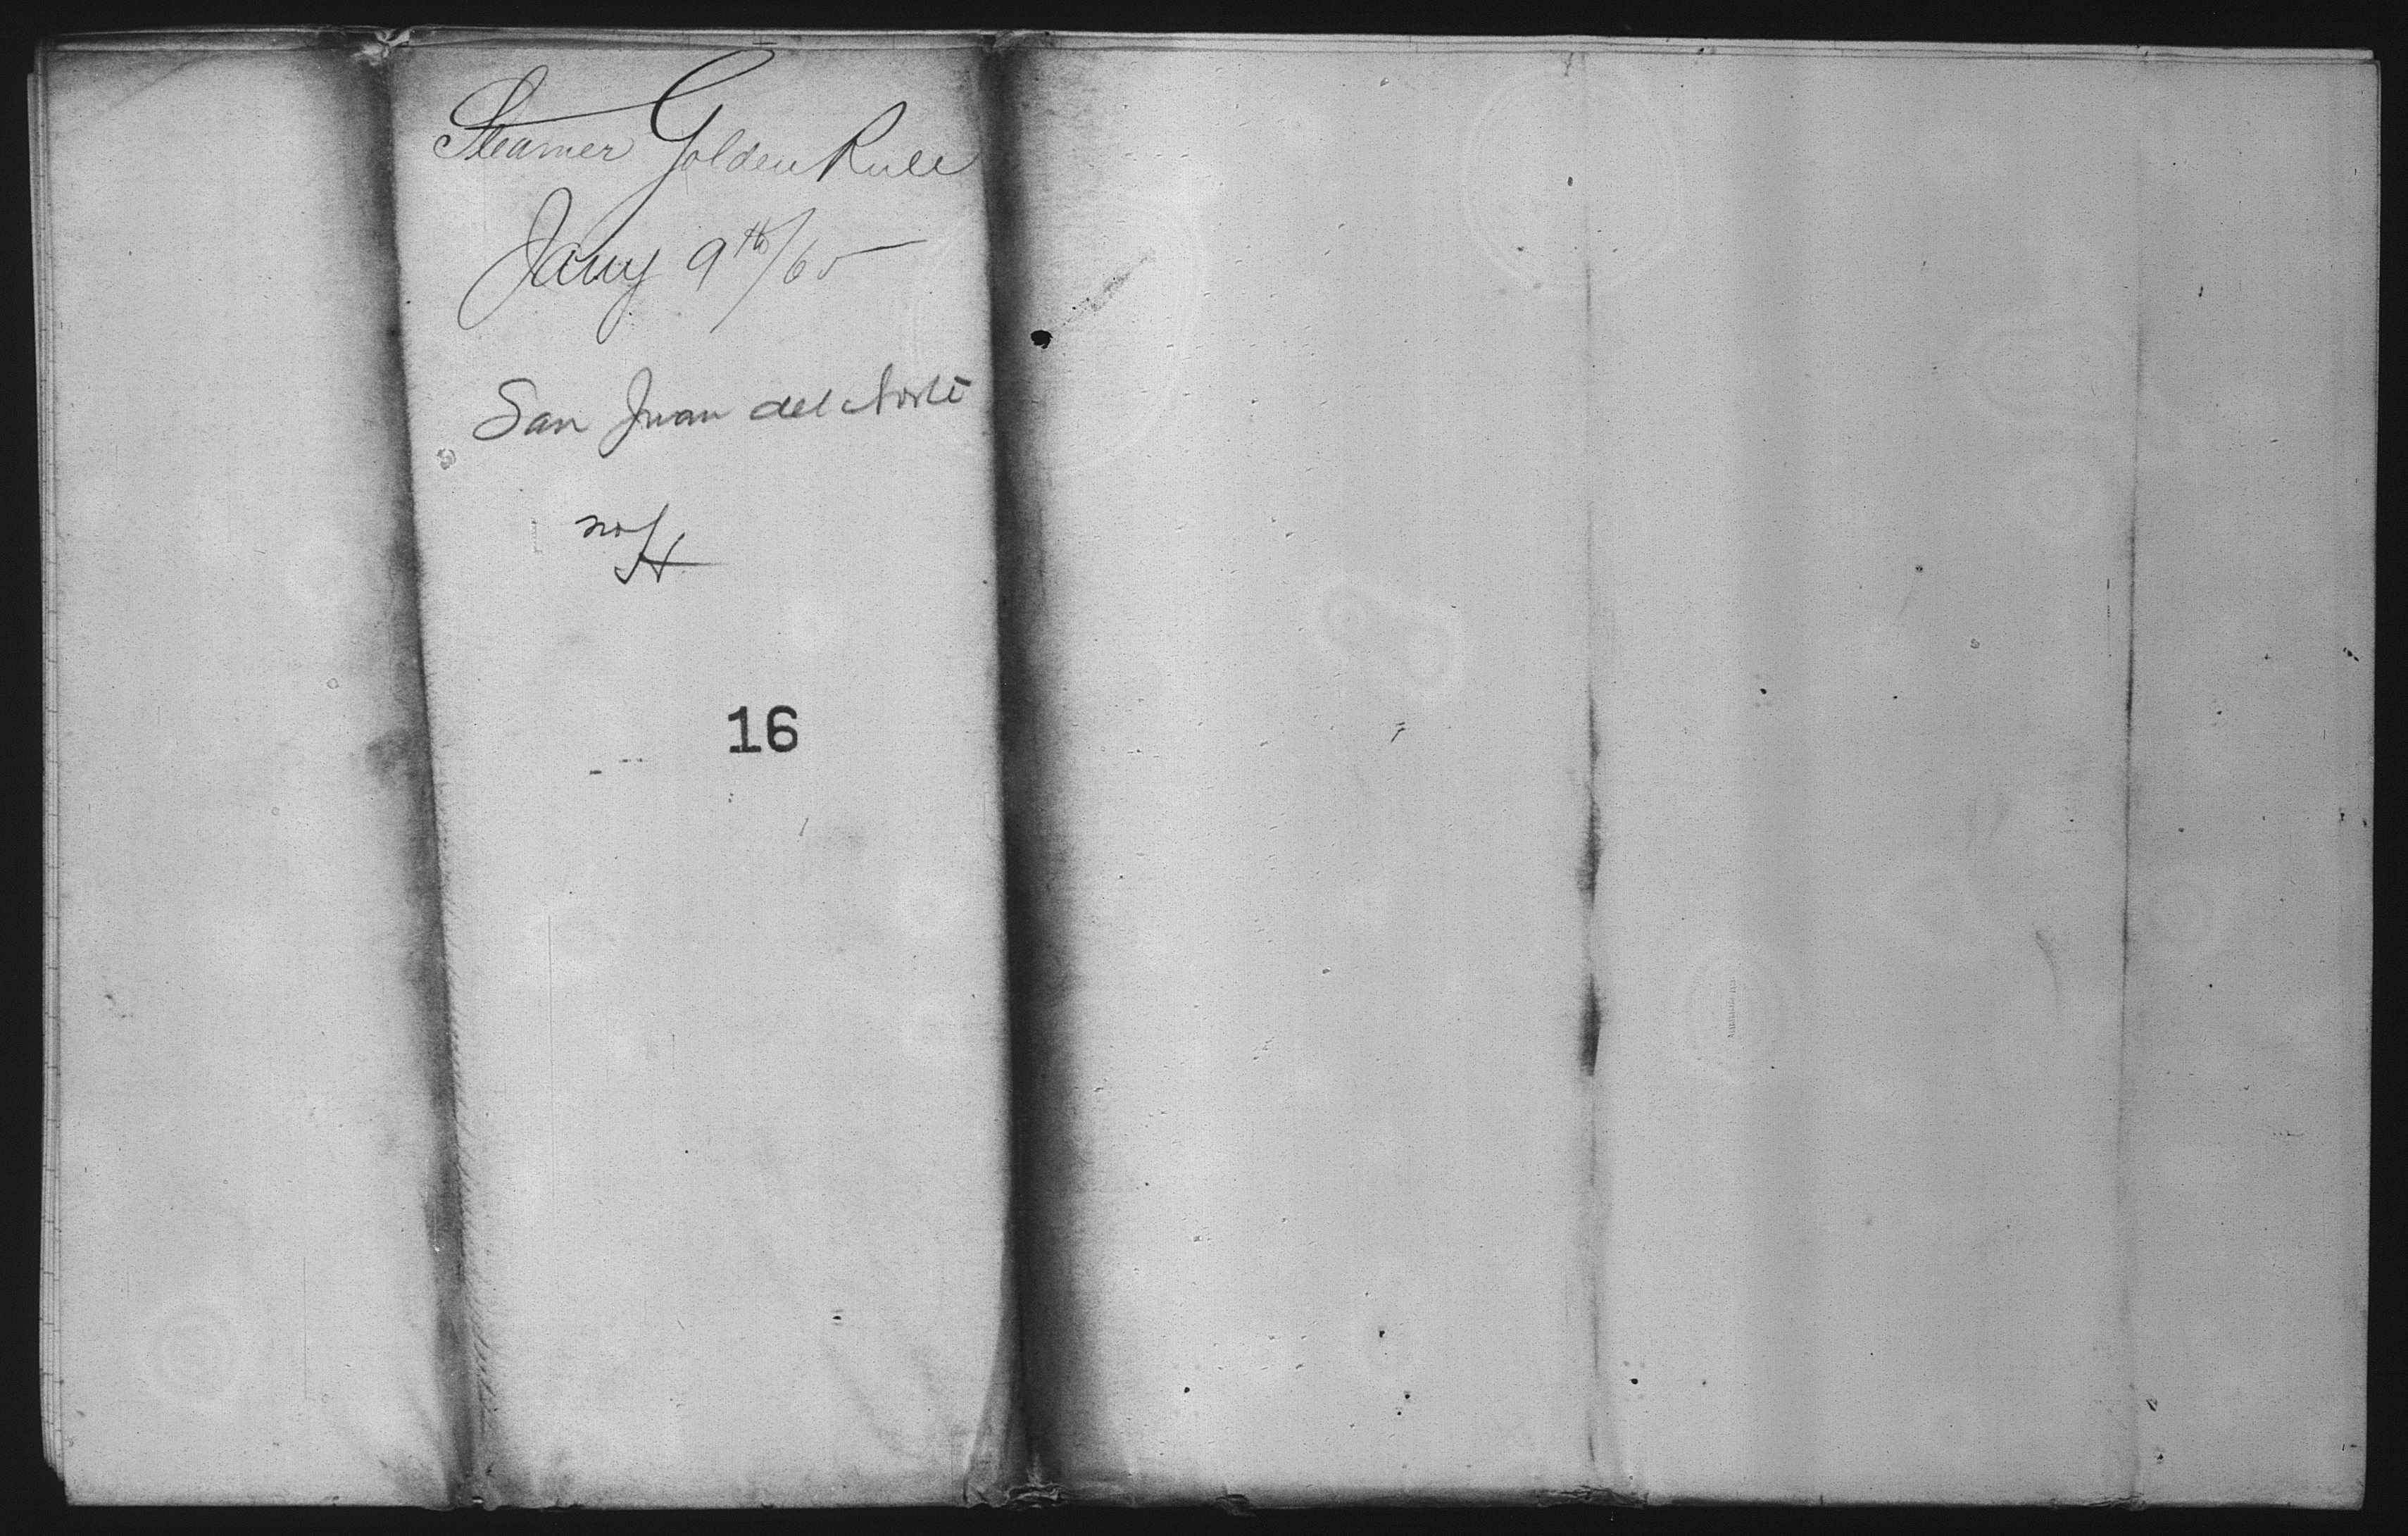 Steamer Golden Rule
Jany 9th/65
San Juan del Norte
no
16